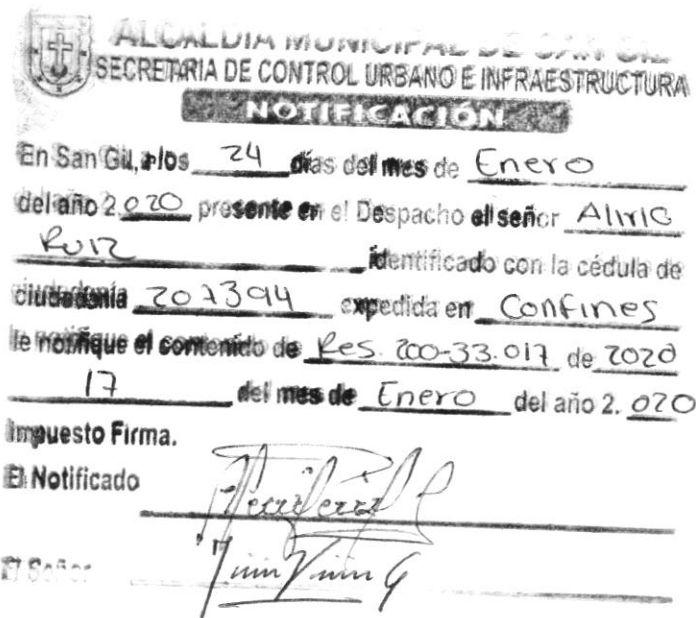 ALCALDIA MUNICIPAL DE SAN GIL
SECRETARIA DE CONTROL URBANO E INFRAESTRUCTURA
NOTIFICACIÓN
En San Gil, a los 24 días del mes de Enero
del año 2.020 presente en el Despacho el señor Alirio
Ruiz identificado con la cédula de
ciudadanía 207394 expedida en Confines
le notifique el contenido de Res. 200-33.017 de 2020
17 del mes de Enero del año 2.020
Impuesto Firma.
El Notificado
El Señor